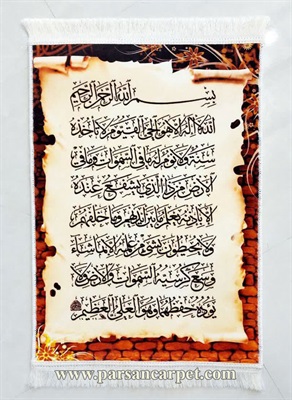 بِسْمِ اللَّهِ الرَّحْمَنِ الرَّحِيمِ
اللَّهُ لَا إِلَهَ إِلَّا هُوَ الْحَيُّ الْقَيُّومُ لَا تَأْخُذُهُ
سِنَةٌ وَلَا نَوْمٌ لَهُ مَا فِي السَّمَوَاتِ وَمَا فِي
الْأَرْضِ مَنْ ذَا الَّذِي يَشْفَعُ عِنْدَهُ
إِلَّا بِإِذْنِهِ يَعْلَمُ مَا بَيْنَ أَيْدِيهِمْ وَمَا خَلْفَهُمْ
وَلَا يُحِيطُونَ بِشَيْءٍ مِنْ عِلْمِهِ إِلَّا بِمَا شَاءَ
وَسِعَ كُرْسِيُّهُ السَّمَوَاتِ وَالْأَرْضَ وَلَا
يَئُودُهُ حِفْظُهُمَا وَهُوَ الْعَلِيُّ الْعَظِيمُ
www.parsancarpet.com